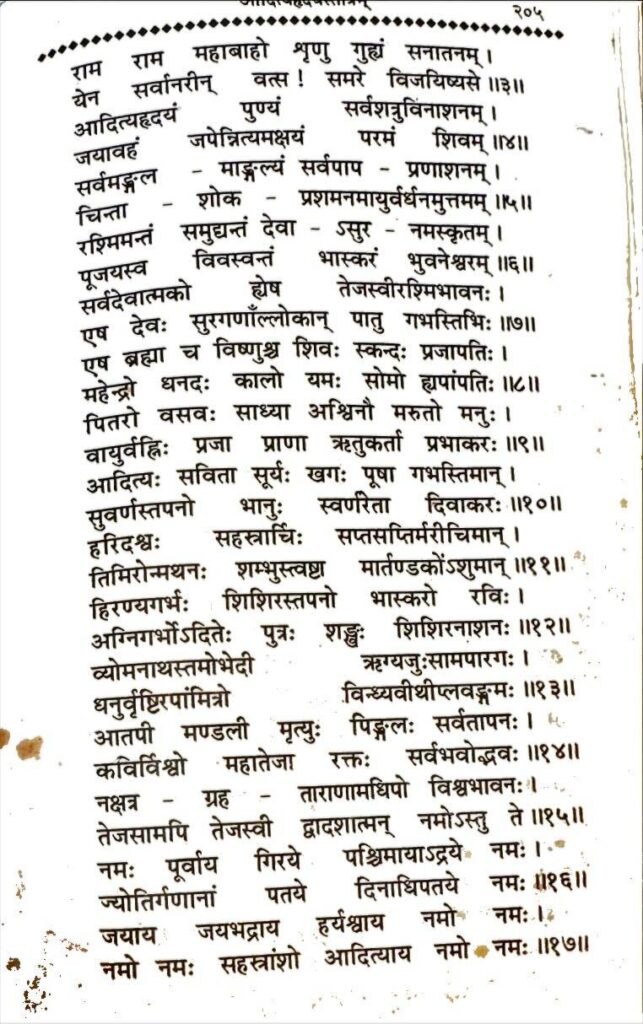 आदित्यहृदयस्तोत्रम् २०५
राम राम महाबाहो शृणु गुह्यं सनातनम्।
येन सर्वानरीन् वत्स! समरे विजयिष्यसे॥३॥
आदित्यहृदयं पुण्यं सर्वशत्रुविनाशनम्।
जयावहं जपेन्नित्यमक्षयं परमं शिवम्॥४॥
सर्वमङ्गल - माङ्गल्यं सर्वपाप - प्रणाशनम्।
चिन्ता - शोक - प्रशमनमायुर्वर्धनमुत्तमम्॥५॥
रश्मिमन्तं समुद्यन्तं देवा - ऽसुर - नमस्कृतम्।
पूजयस्व विवस्वन्तं भास्करं भुवनेश्वरम्॥६॥
सर्वदेवात्मको ह्येष तेजस्वीरश्मिभावनः।
एष देवः सुरगणाँल्लोकान् पातु गभस्तिभिः॥७॥
एष ब्रह्मा च विष्णुश्च शिवः स्कन्दः प्रजापतिः।
महेन्द्रो धनदः कालो यमः सोमो ह्यपांपतिः॥८॥
पितरो वसवः साध्या अश्विनौ मरुतो मनुः।
वायुर्वह्निः प्रजा प्राणा ऋतुकर्ता प्रभाकरः॥९॥
आदित्यः सविता सूर्यः खगः पूषा गभस्तिमान्।
सुवर्णस्तपनो भानुः स्वर्णरेता दिवाकरः॥१०॥
हरिदश्वः सहस्त्रार्चिः सप्तसप्तिर्मरीचिमान्।
तिमिरोन्मथनः शम्भुस्त्वष्टा मार्तण्डकोंऽशुमान्॥११॥
हिरण्यगर्भः शिशिरस्तपनो भास्करो रविः।
अग्निगर्भोऽदितेः पुत्रः शङ्खः शिशिरनाशनः॥१२॥
व्योमनाथस्तमोभेदी ऋग्यजुःसामपारगः।
धनुर्वृष्टिरपांमित्रो विन्ध्यवीथीप्लवङ्गमः॥१३॥
आतपी मण्डली मृत्युः पिङ्गलः सर्वतापनः।
कविर्विश्वो महातेजा रक्तः सर्वभवोद्भवः॥१४॥
नक्षत्र - ग्रह - ताराणामधिपो विश्वभावनः।
तेजसामपि तेजस्वी द्वादशात्मन् नमोऽस्तु ते॥१५॥
नमः पूर्वाय गिरये पश्चिमायाऽद्रये नमः।
ज्योतिर्गणानां पतये दिनाधिपतये नमः॥१६॥
जयाय जयभद्राय हर्यश्वाय नमो नमः।
नमो नमः सहस्त्रांशो आदित्याय नमो नमः॥१७॥